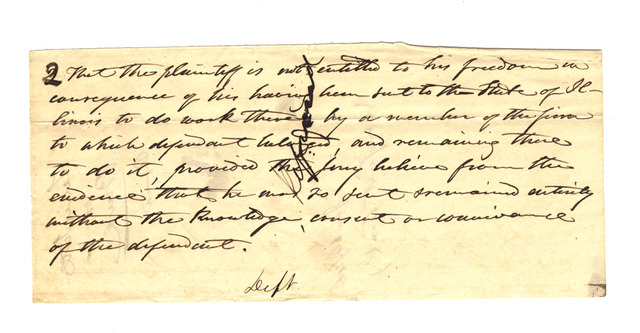 2 That the plaintiff is not entitled to his freedom in
consequence of his having been sent to the State of Il-
linois to do work there by a member of the firm
to which defendant belonged, and remaining there
to do it, provided the jury believe from the
evidence that he was so sent & remained entirely
without the knowledge, consent or connivance
of the defendant.
Deft